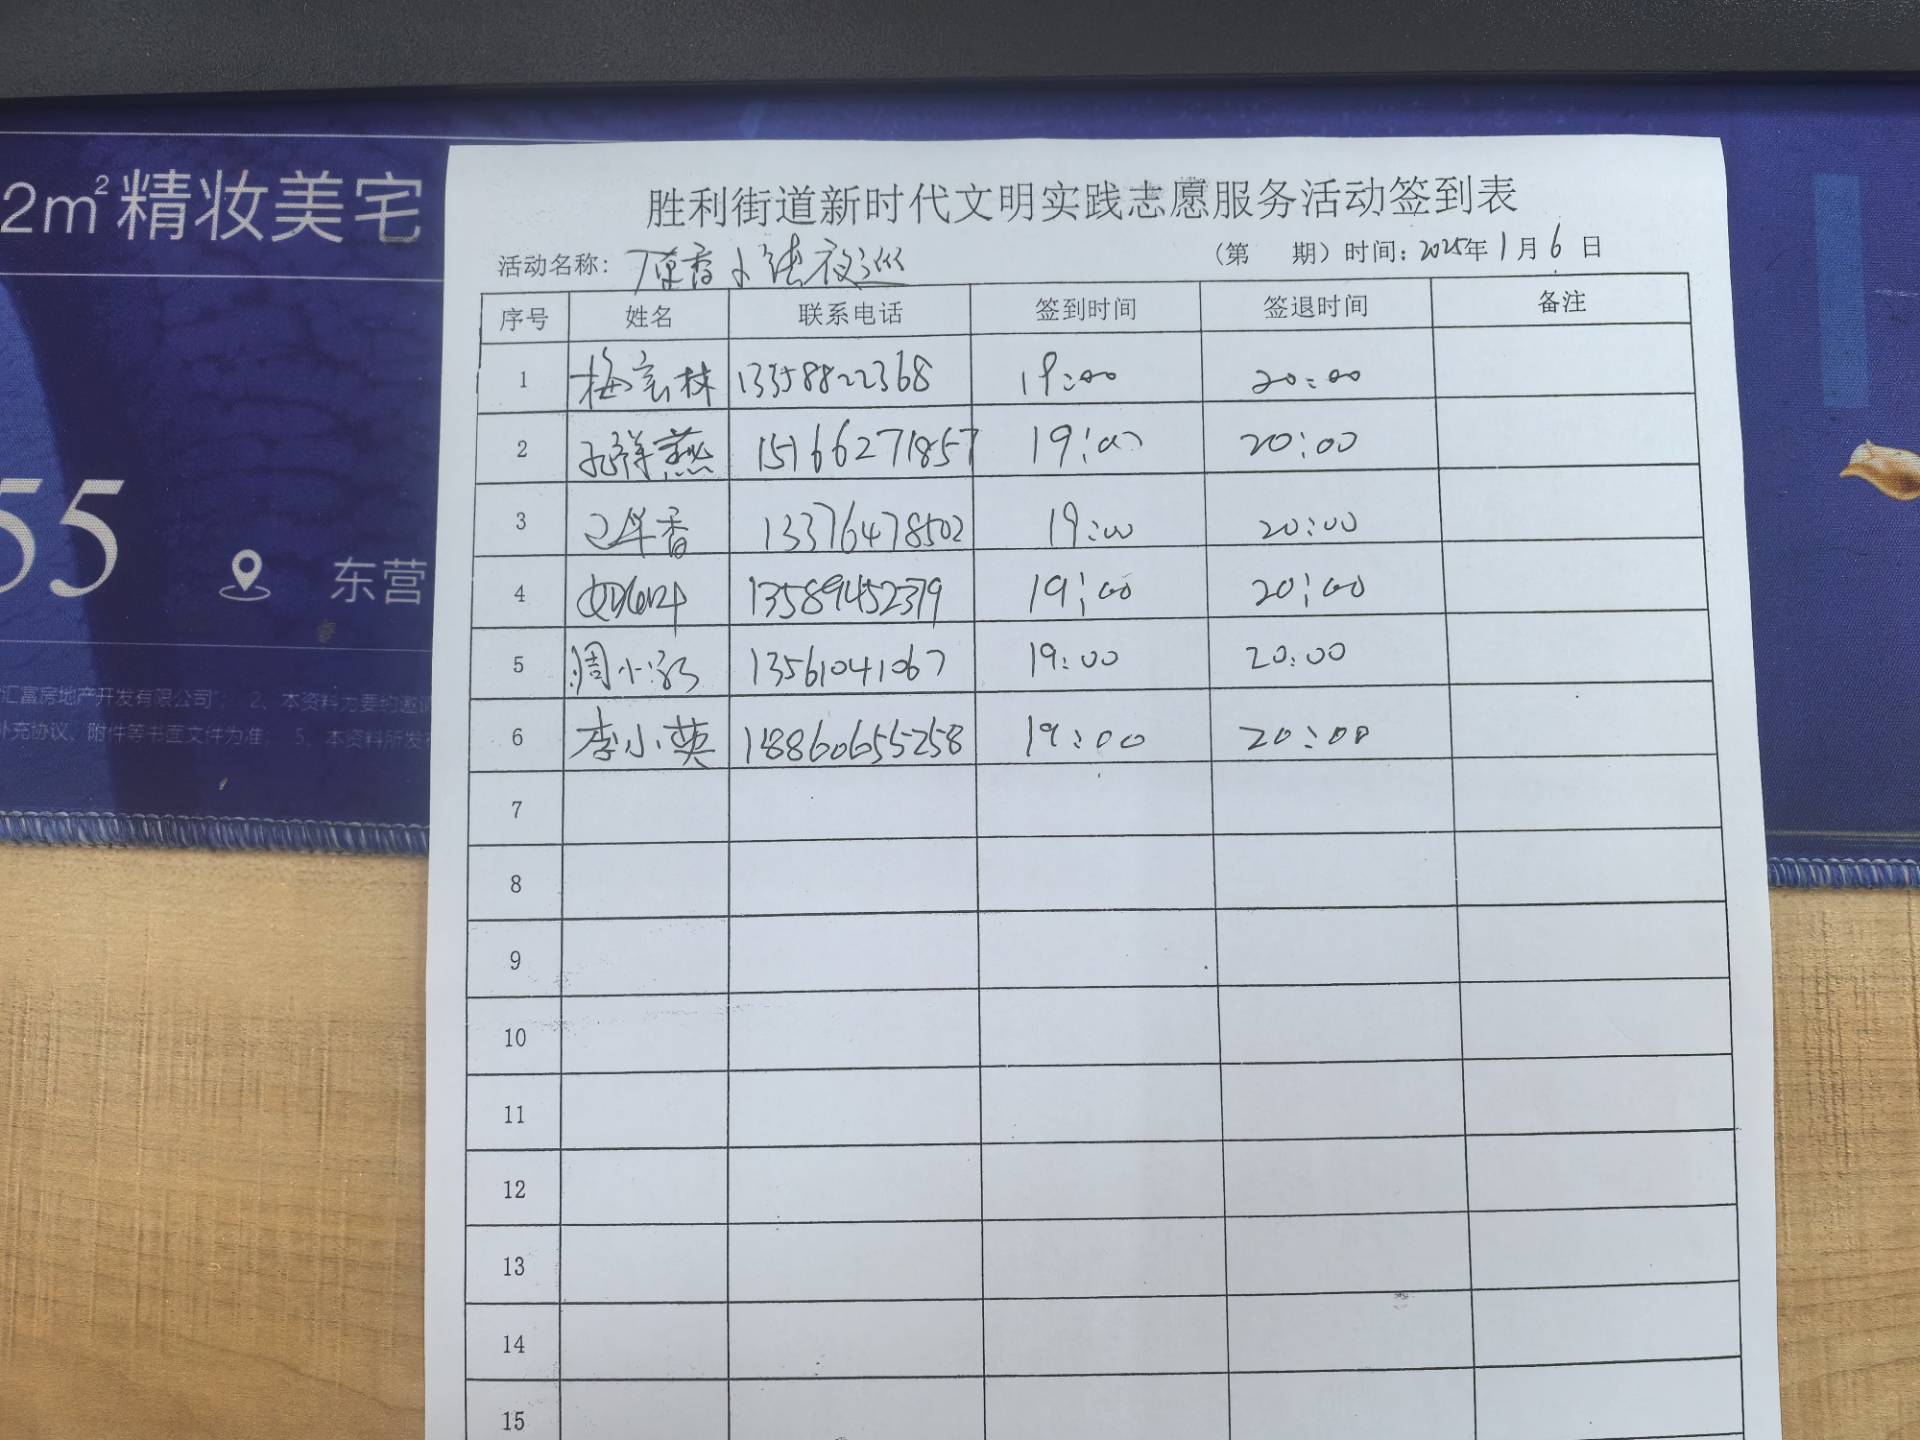 2m²精妆美宅
55
东营
汇富房地产开发有限公司； 2、本资料为要约邀请
补充协议、附件等书面文件为准； 5、本资料所发
胜利街道新时代文明实践志愿服务活动签到表
活动名称： （第 期）时间：2025年1月6日
序号 姓名 联系电话 签到时间 签退时间 备注
1 梅 林 13358822368 19:00 20:00
2 孔祥燕 15166271857 19:00 20:00
3 香 13376478502 19:00 20:00
4 13589452379 19:00 20:00
5 周小 13561041067 19:00 20:00
6 李小英 18860655258 19:00 20:00
7
8
9
10
11
12
13
14
15